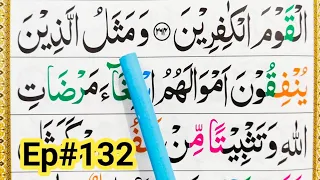 الْقَوْمَ الْكٰفِرِيْنَ ۝۲۶۴ وَمَثَلُ الَّذِيْنَ
يُنْفِقُوْنَ اَمْوَالَهُمُ ابْتِغَآءَ مَرْضَاتِ
اللهِ وَتَثْبِيْتًا مِّنْ كَمَثَ
Ep#132